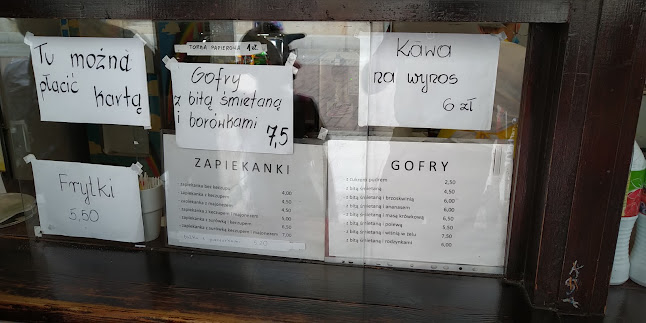 Tu można
płacić
kartą
TORBA PAPIEROWA 1 zł
Gofry
z bitą śmietaną
i borówkami
7,5
Kawa
na wynos
6 zł
Frytki
5,50
ZAPIEKANKI
zapiekanka bez keczupu 4,00
zapiekanka z keczupem 4,50
zapiekanka z majonezem 4,50
zapiekanka z keczupem i majonezem 5,00
zapiekanka z surówką i keczupem 6,50
7,00
GOFRY
z cukrem pudrem 2,50
z bitą śmietaną 4,50
z bitą śmietaną i brzoskwinią 6,00
z bitą śmietaną i ananasem 6,00
z bitą śmietaną i masą krówkową 6,50
z bitą śmietaną i polewą 5,50
z bitą śmietaną i wiśnią w żelu 7,50
z bitą śmietaną i rodzynkami 6,00